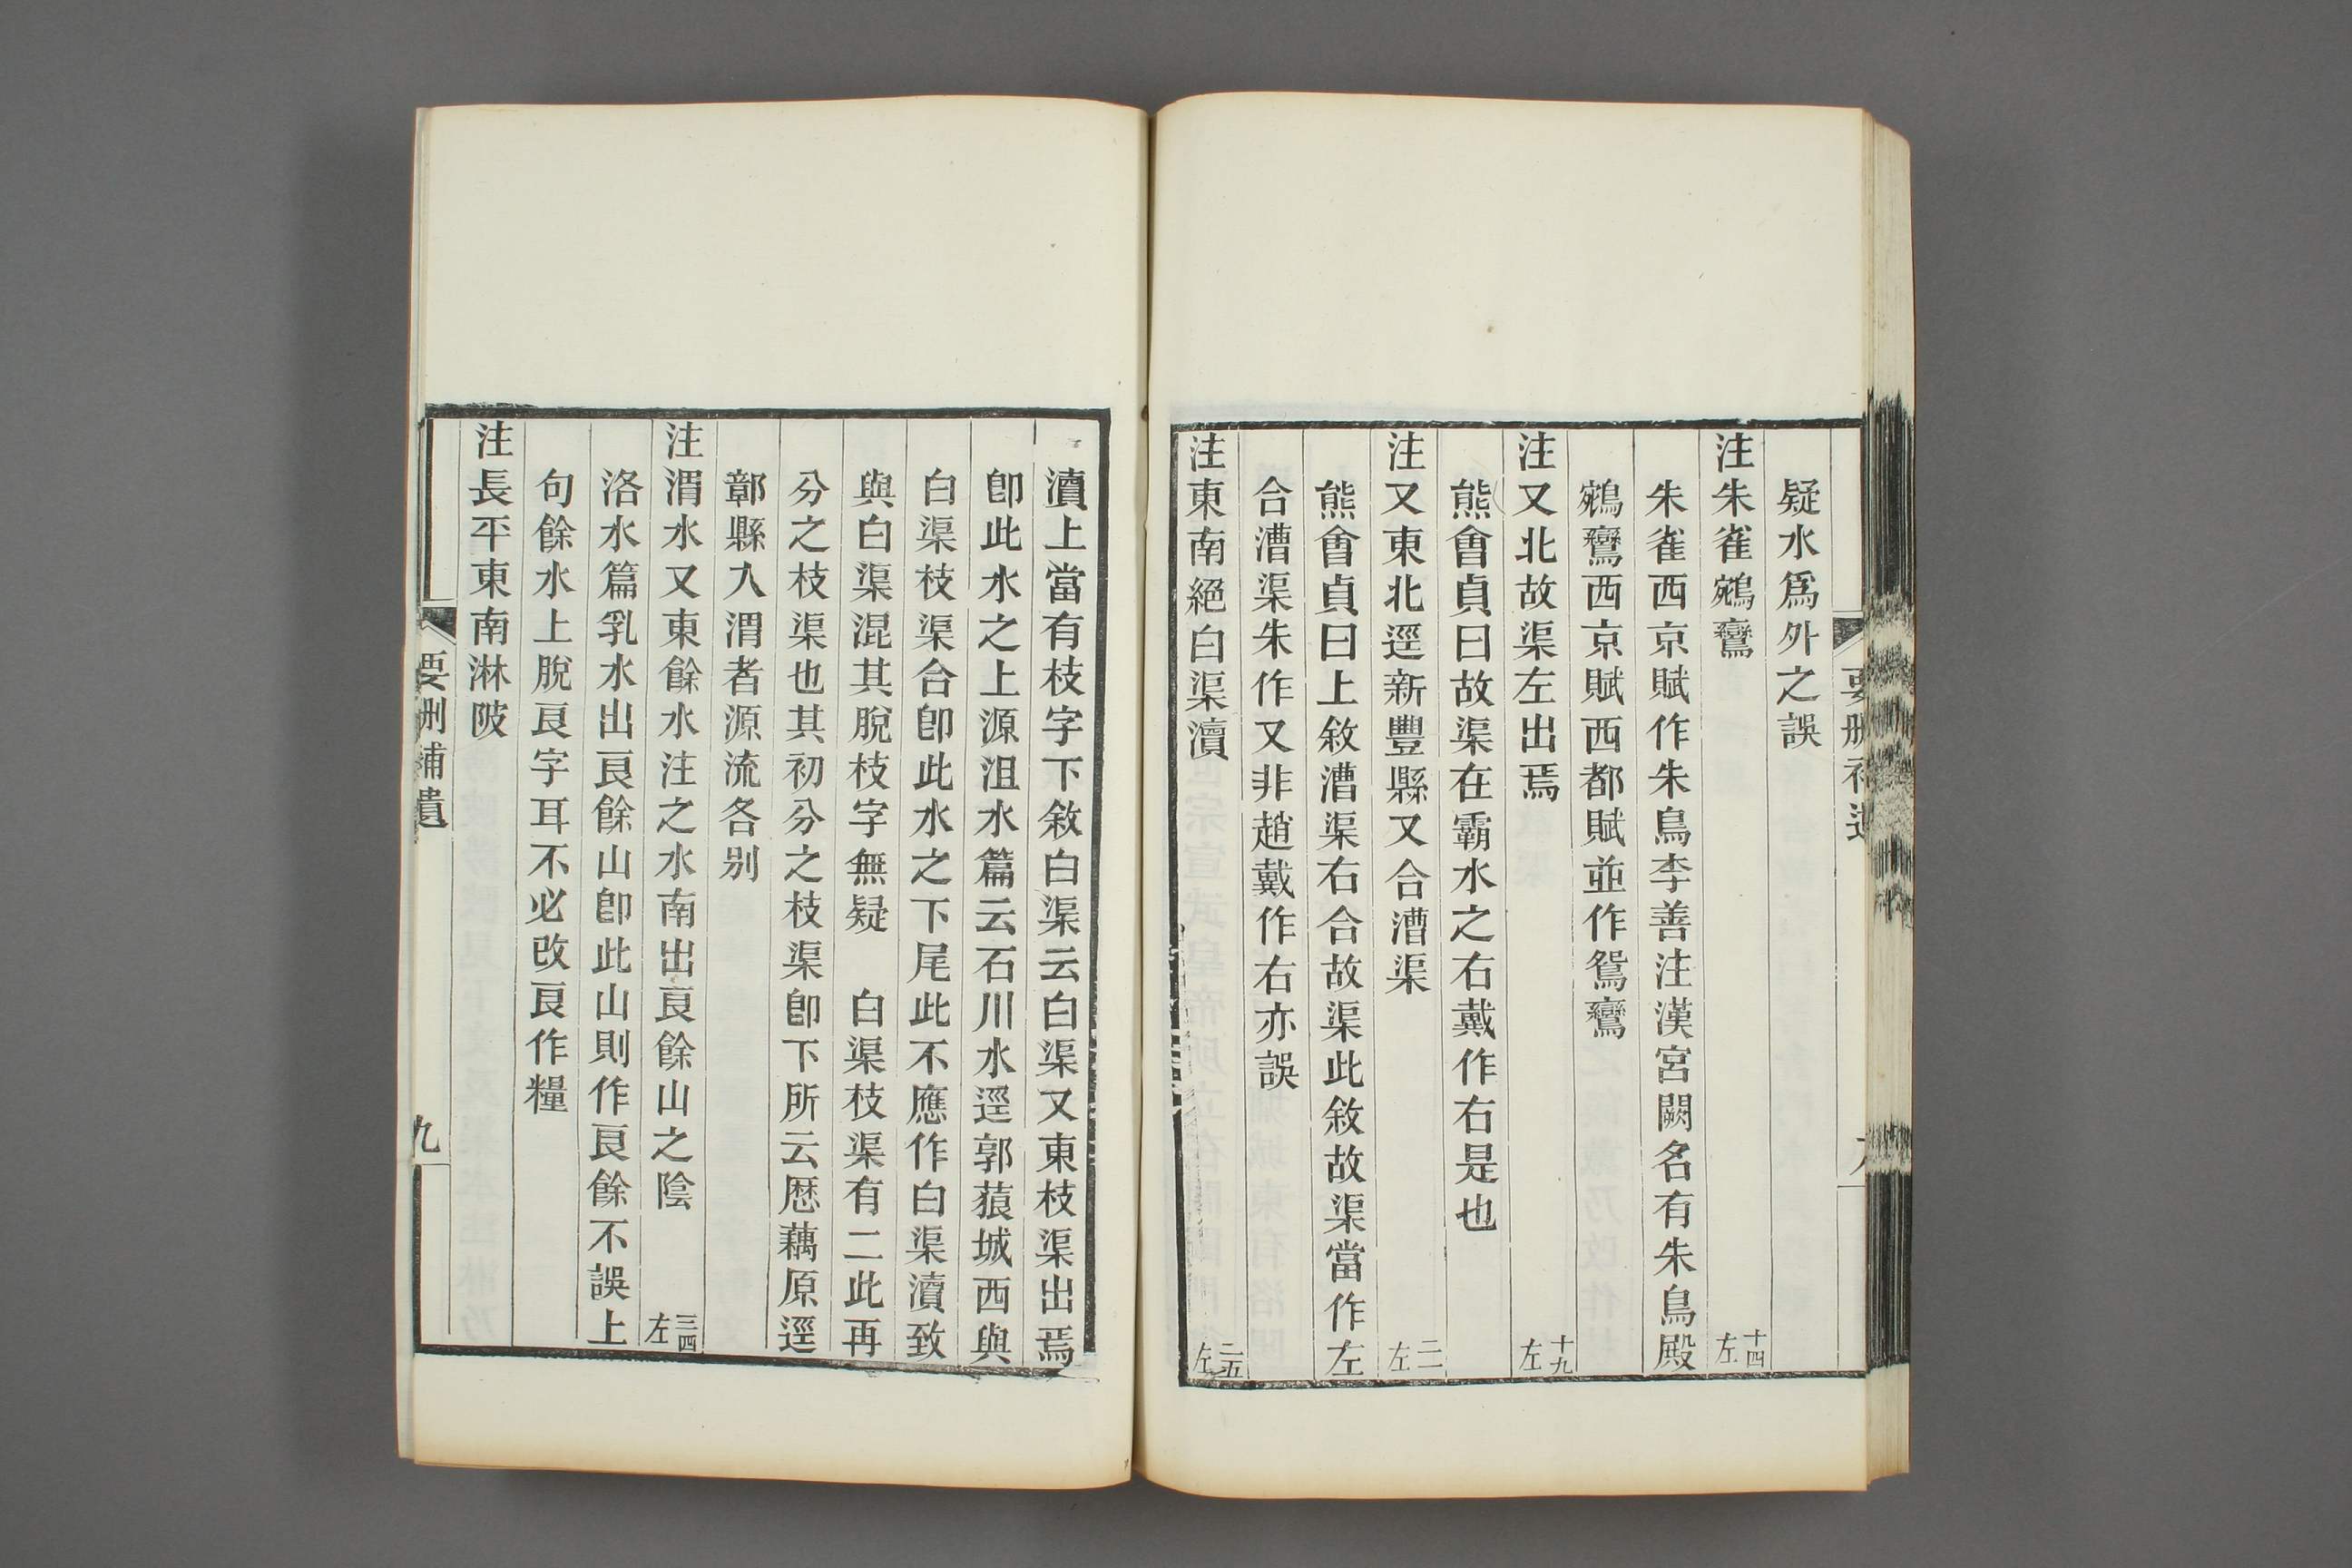 疑水爲外之誤
注朱雀鵷鸞 十四左
朱雀西京賦作朱鳥李善注漢宮闕名有朱鳥殿
鵷鸞西京賦西都賦並作鴛鸞
注又北故渠左出焉 十九左
熊會貞曰故渠在霸水之右戴作右是也
注又東北逕新豐縣又合漕渠 二一左
熊會貞曰上敘漕渠右合故渠此敘故渠當作左
合漕渠朱作又非趙戴作右亦誤
注東南絕白渠瀆 二五左
瀆上當有枝字下敘白渠云白渠又東枝渠出焉
卽此水之上源沮水篇云石川水逕郭蒗城西與
白渠枝渠合卽此水之下尾此不應作白渠瀆致
與白渠混其脫枝字無疑　白渠枝渠有二此再
分之枝渠也其初分之枝渠卽下所云歷藕原逕
鄣縣入渭者源流各别
注渭水又東餘水注之水南出良餘山之陰 三四左
洛水篇乳水出良餘山卽此山則作良餘不誤上
句餘水上脫良字耳不必改良作糧
注長平東南淋陂
要删補遺
九